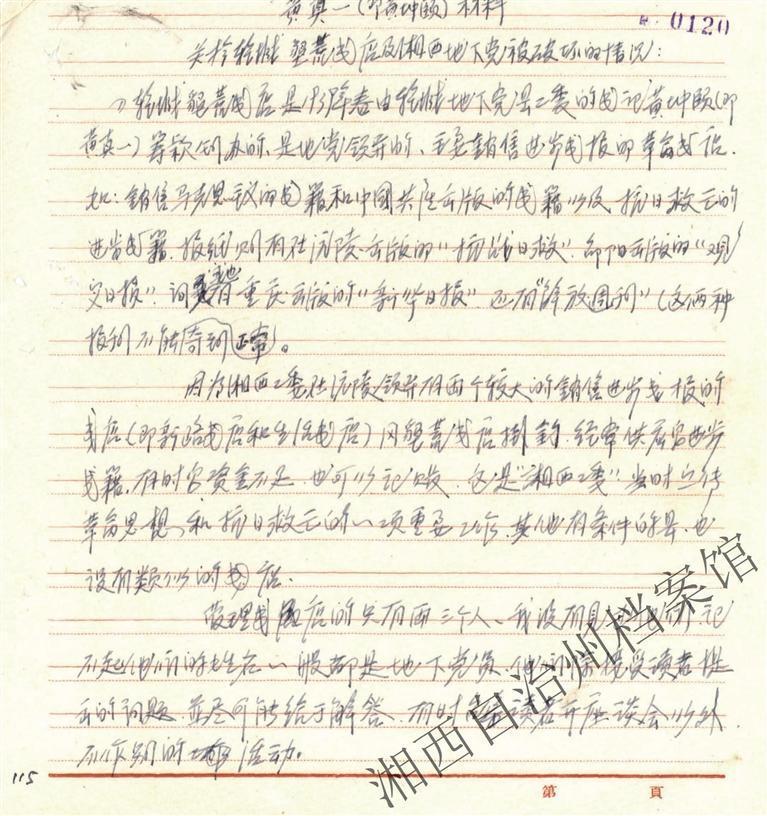 黄真一(即黄坤颐)材料
0120
关于乾城垦荒书店及湘西地下党被破坏的情况:
1)乾城垦荒书店是1938年春由乾城地下党县工委的书记黄坤颐(即
黄真一)筹款创办的、是地党领导的、主要销售进步书报的革命书店.
如:销售马克思主义的书籍和中国共产党出版的书籍以及抗日救亡的
进步书籍.报纸则有在沅陵出版的"抗战日报".邵阳出版的"观
察日报". 重庆出版的"新华日报".还有"解放周刊"(这两种
报刊不能得到正常)。
因为湘西工委在沅陵领导有两个较大的销售进步书报的
书店(即新路书店和生活书店)同垦荒书店挂钩.经常供应各进步
书籍.有时候资金不足.也可以记账.这是"湘西工委"当时宣传
革命思想、和抗日救亡的一项重要工作.其他有条件的县.也
设有类似的书店.
管理书店的只有两三个人、我没有见过他们记
不起他们的姓名.一般都是地下党员.他们除接受读者提
出的问题.并尽可能给予解答.有时 读者开座谈会以外.
不作别的 活动。
115
第 頁
湘西自治州档案馆